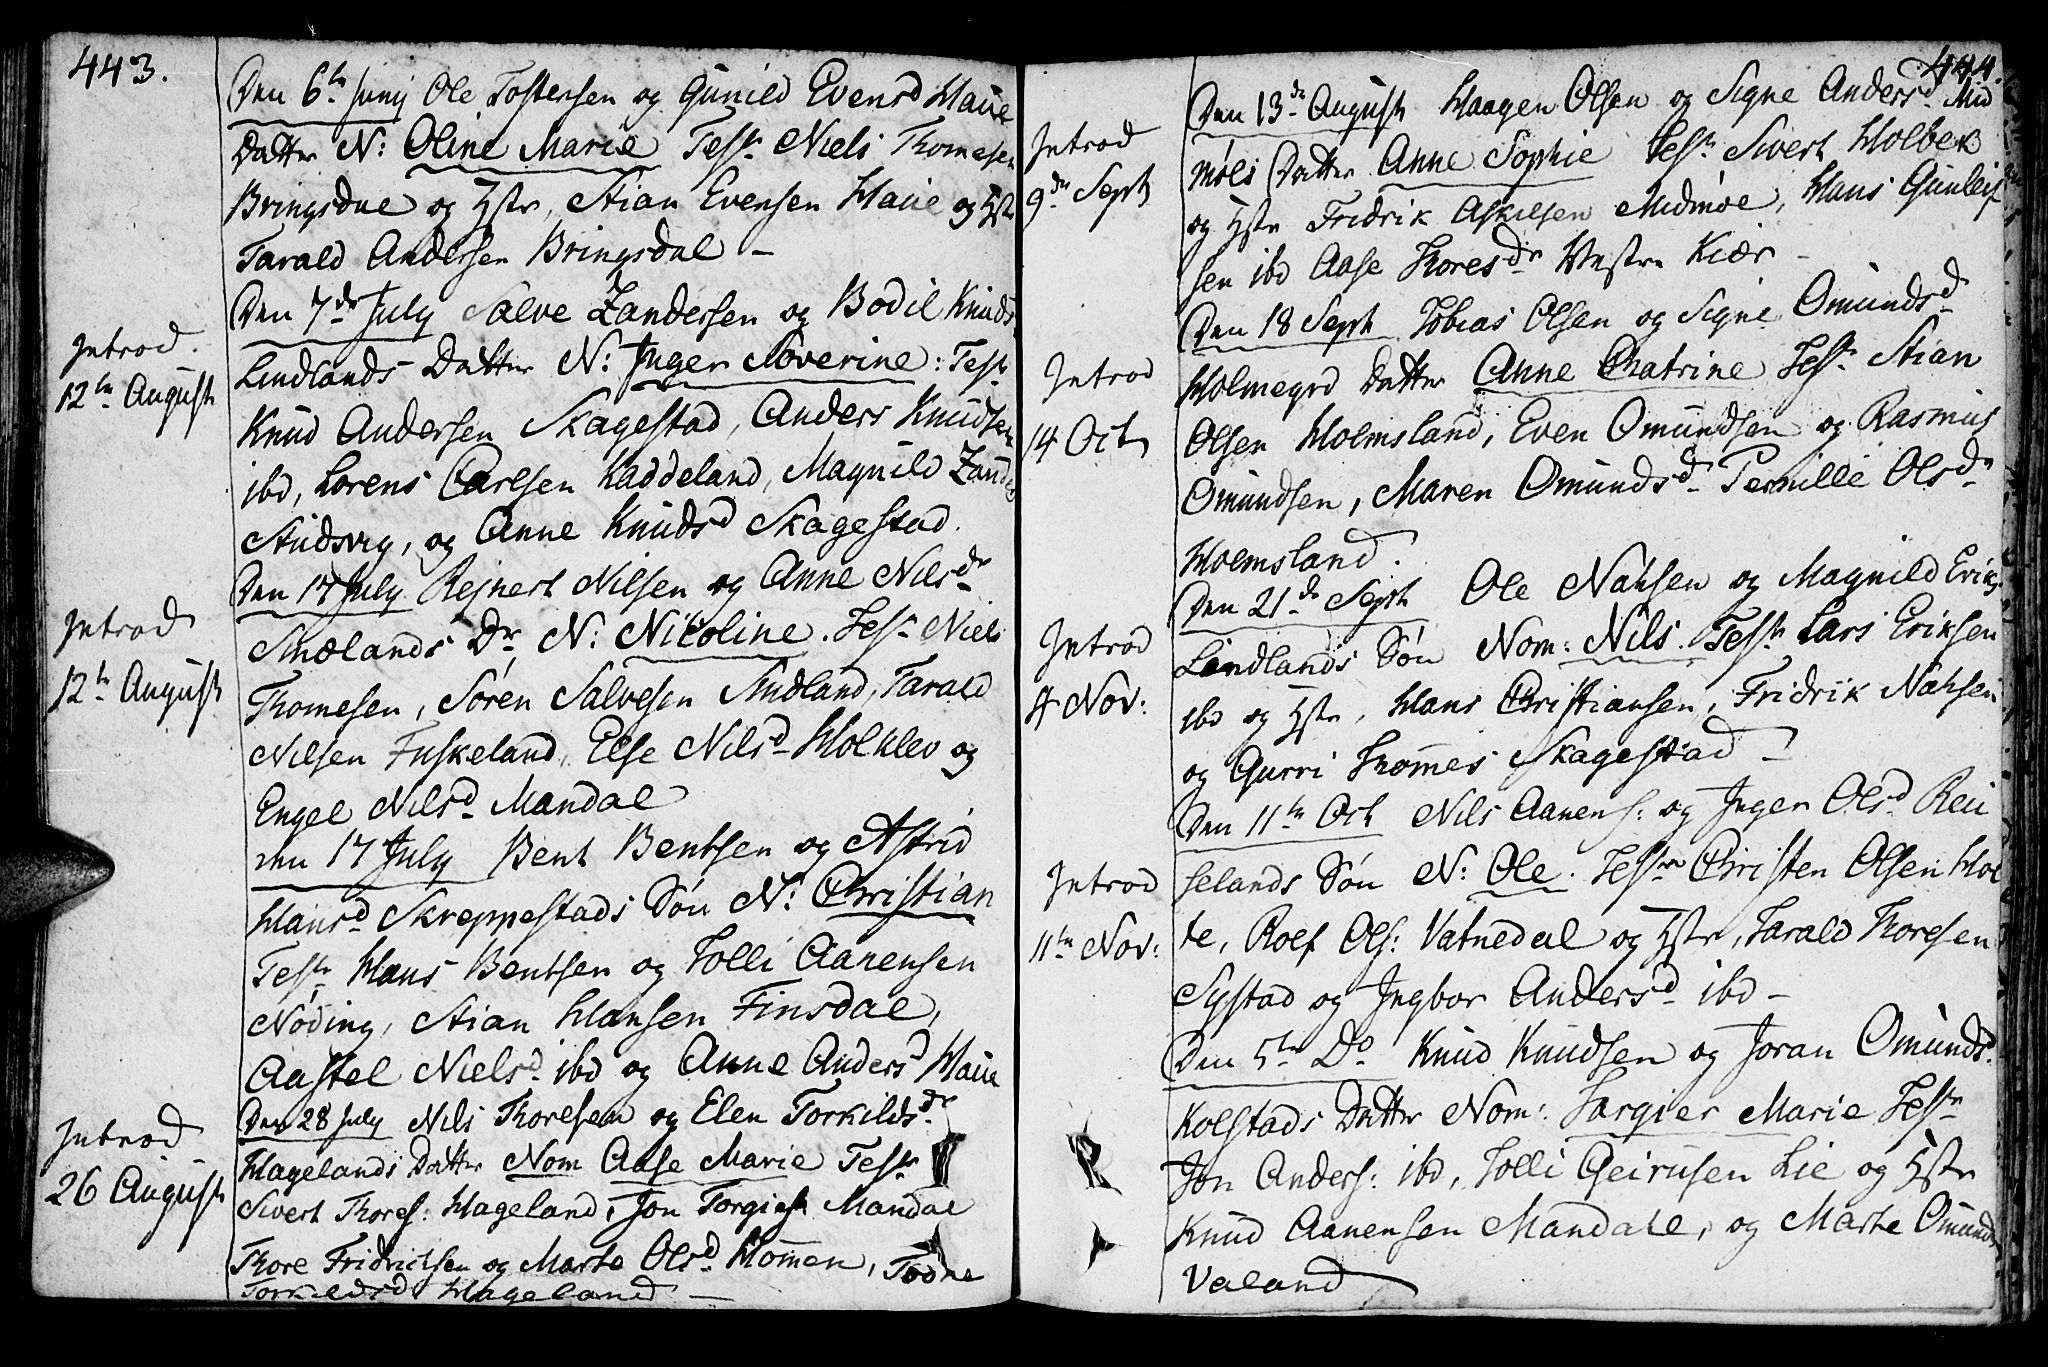 443.
Den 6te Junij Ole Tostensen og Gunild Evensd Haue
Datter N: Oline Marie Test Niels Thomesen
Bringsdue og Hstr, Stian Evensen Haue og Hstr
Tarald Andersen Bringsdal –
Den 7de July Salve Zandersen og Bodil Knuds
Introd.
Lindlands Datter N: Inger Severine: Test
12te August
Knud Andersen Skagestad, Anders Knudsen
ibd, Lorens Carlsen Kaddeland, Magnild Zanders
Studsvig, og Anne Knudsd Skagestad.
Den 17 July Rejnert Nilsen og Anne Nilsdr
Introd
Smelands Dr N: Nicoline. Test Niels
12te August
Thomesen, Søren Salvesen Smeland, Tarald
Nilsen Fuskeland, Else Nilsd Holklev og
Engel Nilsd Mandal
Den 17 July Bent Bentsen og Astrid
Hansd Skreppestads Søn N: Christian
Test Hans Bentsen og Tolli Aanensen
Nøding, Stian Hansen Finsdal,
Aastel Nielsd ibd og Anne Andersd Haue
Den 28 July Nils Thoresen og Elen Torkildsdr
Introd
Hagelands Datter Nom Aase Marie Test
26 August
Sivert Thores: Hageland, Jon Torgiest Mandal
Thore Fridrichsen og Marte Olsd Homen, Todne
Torkildsd Hageland –
444.
Den 13de August Haagen Olsen og Signe Andersd Mid
Introd
møls Datter Anne Sophie Test Sivert Holbek
9de Sept
og Hstr Fridrik Askilsen Midmøe, Hans Gunleif
sen ibd Aase Thoresdr Vestre Kiær –
Den 18 Sept Tobias Olsen og Signe Omundsd
Introd
Holmegrd Datter Anne Chatrine Test Stian
14 Oct
Olsen Holmsland, Even Omundsen og Rasmus
Omundsen, Maren Omundsd Pernille Olsd
Holmsland.
Den 21de Sept Ole Nahsen og Magnild Eriks
Introd
Lindlands Søn Nom: Nils. Test Lars Eriksen
4 Nov:
ibd og Hstr, Hans Christiansen, Fridrik Nahsen
og Gurri Thommes Skagestad –
Den 11te Oct Nils Aanens: og Inger Olsd Rei
Introd
selands Søn N: Ole. Test Christen Olsen Hol
11te Nov:
te, Rolf Ols: Vatnedal og Hstr, Tarald Thoresen
Systad og Ingbor Andersd ibd –
Den 5te Do Knud Knudsen og Joran Omundsd
Kolstads Datter Nom: Targier Marie Test
Jon Anders: ibd, Tolli Geirusen Lie og Hstr
Knud Aanensen Mandale, og Marte Omunds
Valand